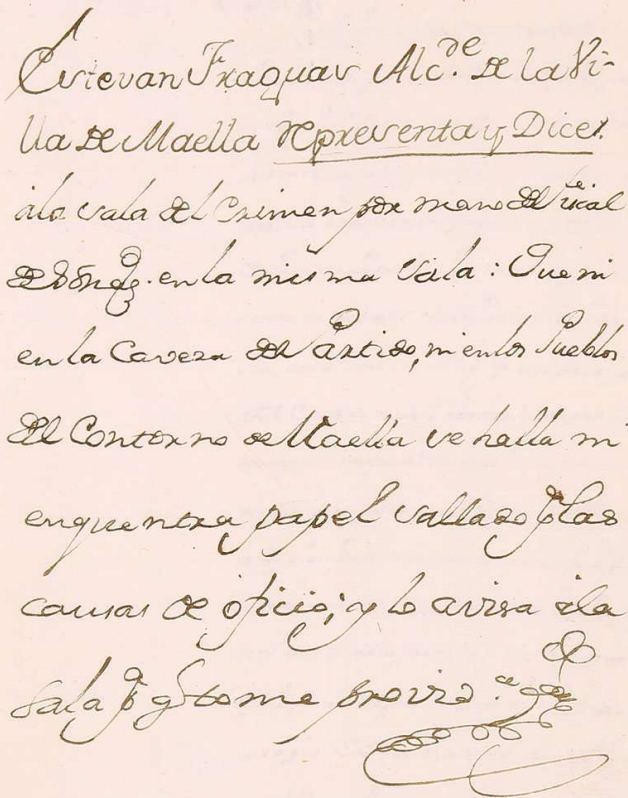 Estevan Fraguas Alc.de de la Vi-
lla de Maella representa y Dice
â la sala del Crimen por mano del Fiscal
de en la misma Sala: Que ni
en la Caveza del Partido, ni en los Pueblos
del Contorno de Maella se halla ni
enquentra papel sellado p.a las
causas de oficio; y lo avisa â la
Sala p.a q.e tome provid.a